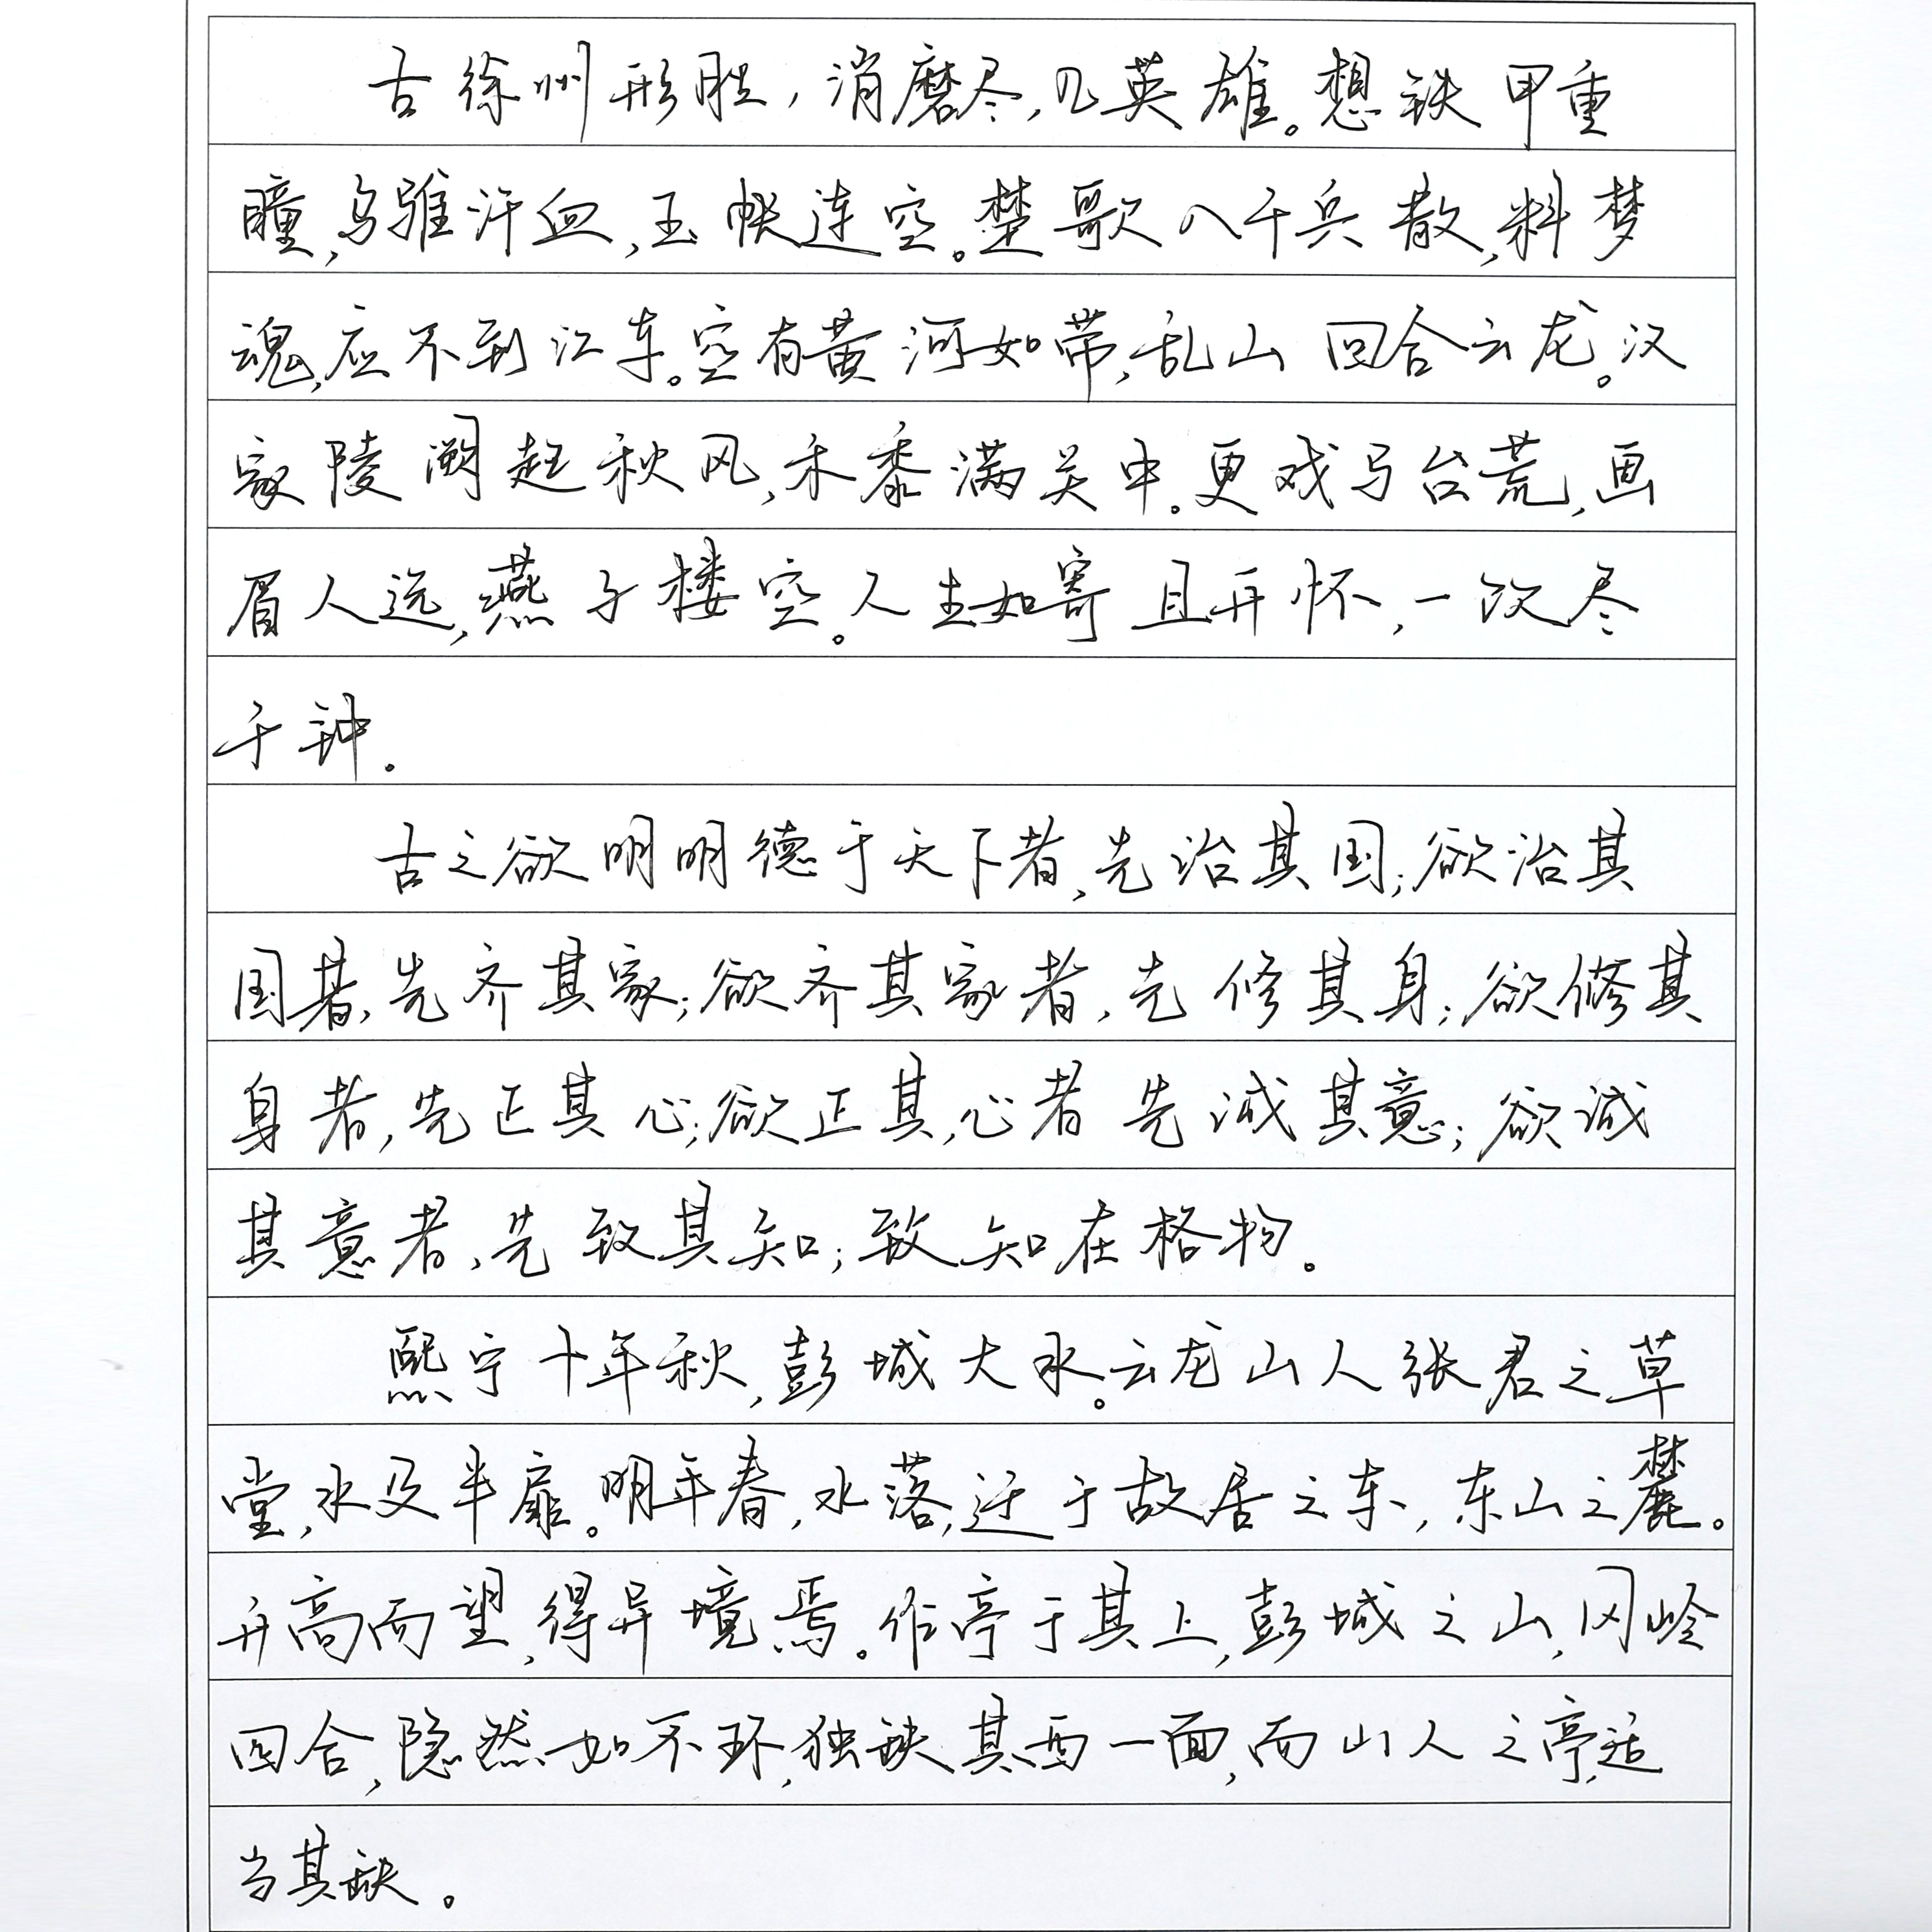 古徐州形胜，消磨尽，几英雄。想铁甲重
瞳，乌骓汗血，玉帐连空。楚歌八千兵散，料梦
魂，应不到江东。空有黄河如带，乱山回合云龙。汉
家陵阙起秋风，禾黍满关中。更戏马台荒，画
眉人远，燕子楼空。人生如寄且开怀，一饮尽
千钟。
古之欲明明德于天下者，先治其国；欲治其
国者，先齐其家；欲齐其家者，先修其身；欲修其
身者，先正其心；欲正其心者先诚其意；欲诚
其意者，先致其知；致知在格物。
熙宁十年秋，彭城大水。云龙山人张君之草
堂，水及半扉。明年春，水落，迁于故居之东，东山之麓。
升高而望，得异境焉。作亭于其上，彭城之山，冈岭
四合，隐然如不环，独缺其西一面，而山人之亭，适
当其缺。